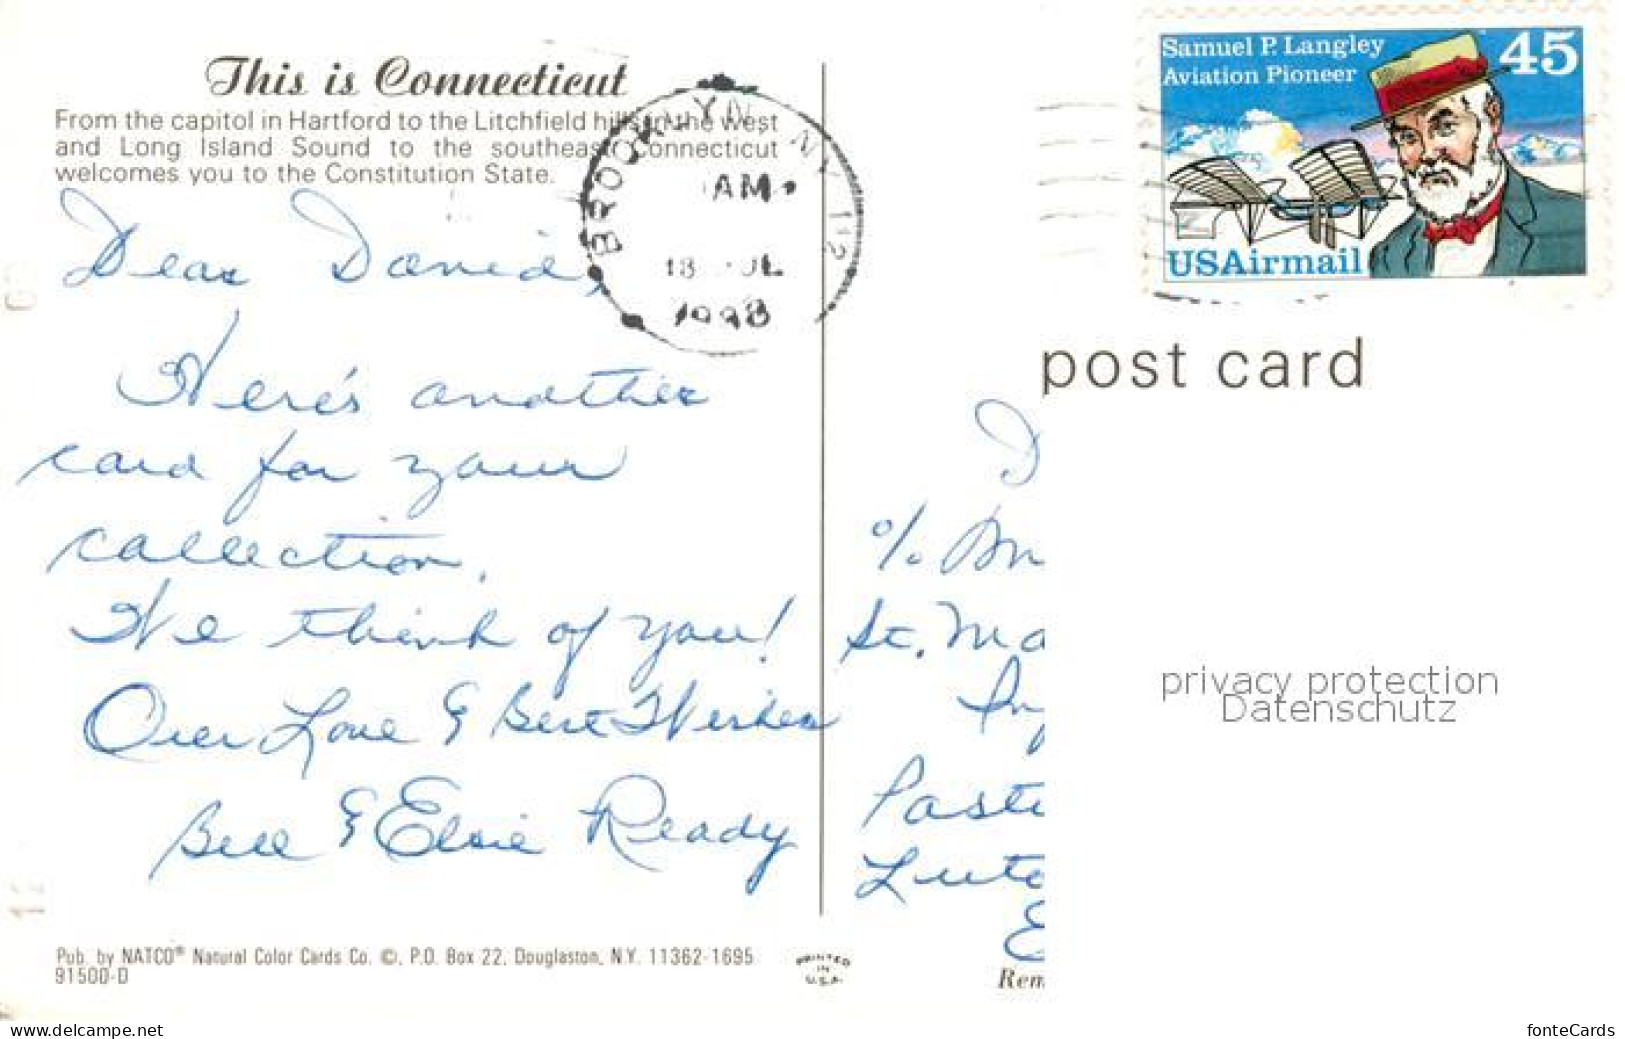 This is Connecticut
From the capitol in Hartford to the Litchfield hills in the west
and Long Island Sound to the southeast Connecticut
welcomes you to the Constitution State.
BROOKLYN NY 112
AM
18 JL
1998
Dear David,
Here's another
card for your
collection.
We think of you!
Our Love & Best Wishes
Bill & Elsie Ready
Pub. by NATCO® Natural Color Cards Co. ©, P.O. Box 22, Douglaston, N.Y. 11362-1695
91500-D
PRINTED
IN
U.S.A.
Samuel P. Langley
Aviation Pioneer
45
USAirmail
post card
D
% Mr
St. Ma
Paste
Luto
E
Rem
privacy protection
Datenschutz
www.delcampe.net
fonteCards